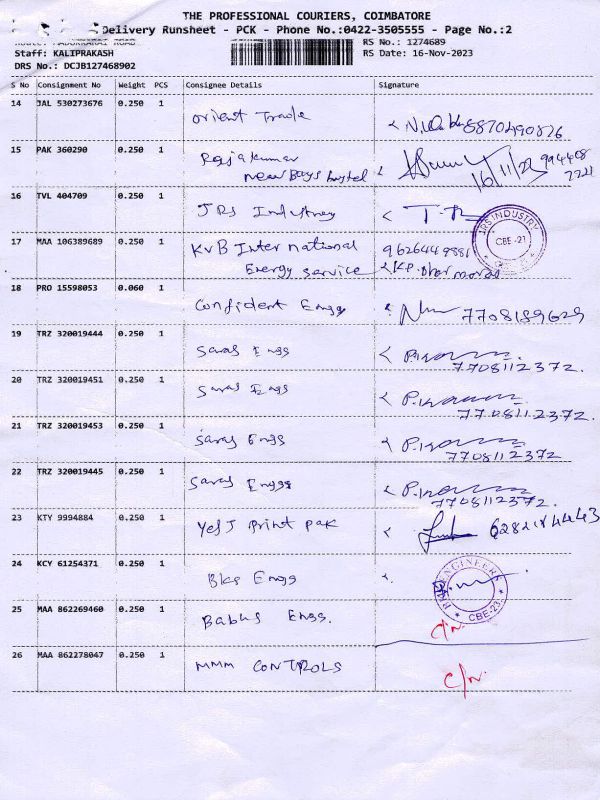 THE PROFESSIONAL COURIERS, COIMBATORE
Delivery Runsheet - PCK - Phone No.:0422-3505555 - Page No.:2
RS No.: 1274689
Staff: KALIPRAKASH
RS Date: 16-Nov-2023
DRS No.: DCJB127468902
S No Consignment No Weight PCS Consignee Details Signature
14 JAL 530273676 0.250 1
Orient Trade
8870490826
15 PAK 360290 0.250 1
Rajakumar
near Boys hostel
16/11/23
16 TVL 404709 0.250 1
JRS Industrey
JRS INDUSTRY
CBE-21
17 MAA 106389689 0.250 1
KVB International
Energy service
9626449881
18 PRO 15598053 0.060 1
Confident Engg
7708189629
19 TRZ 320019444 0.250 1
Saras Engg
7708112372.
20 TRZ 320019451 0.250 1
Saras Engg
7708112372.
21 TRZ 320019453 0.250 1
Saras Engg
7708112372
22 TRZ 320019445 0.250 1
Saras Enggs
7708112372.
23 KTY 9994884 0.250 1
Yes J Print pak
24 KCY 61254371 0.250 1
Bks Engg
ENGINEERS
CBE-23
25 MAA 862269460 0.250 1
Babus Engg.
C/N.
26 MAA 862278047 0.250 1
MMM CONTROLS
C/N.